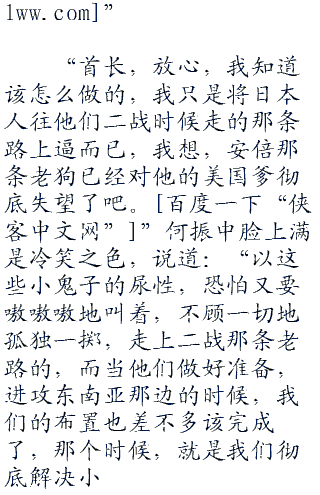 lww.com]”
“首长，放心，我知道
该怎么做的，我只是将日本
人往他们二战时候走的那条
路上逼而已，我想，安倍那
条老狗已经对他的美国爹彻
底失望了吧。[百度一下“侠
客中文网”]”何振中脸上满
是冷笑之色，说道：“以这
些小鬼子的尿性，恐怕又要
嗷嗷嗷地叫着，不顾一切地
孤独一掷，走上二战那条老
路的，而当他们做好准备，
进攻东南亚那边的时候，我
们的布置也差不多该完成
了，那个时候，就是我们彻
底解决小